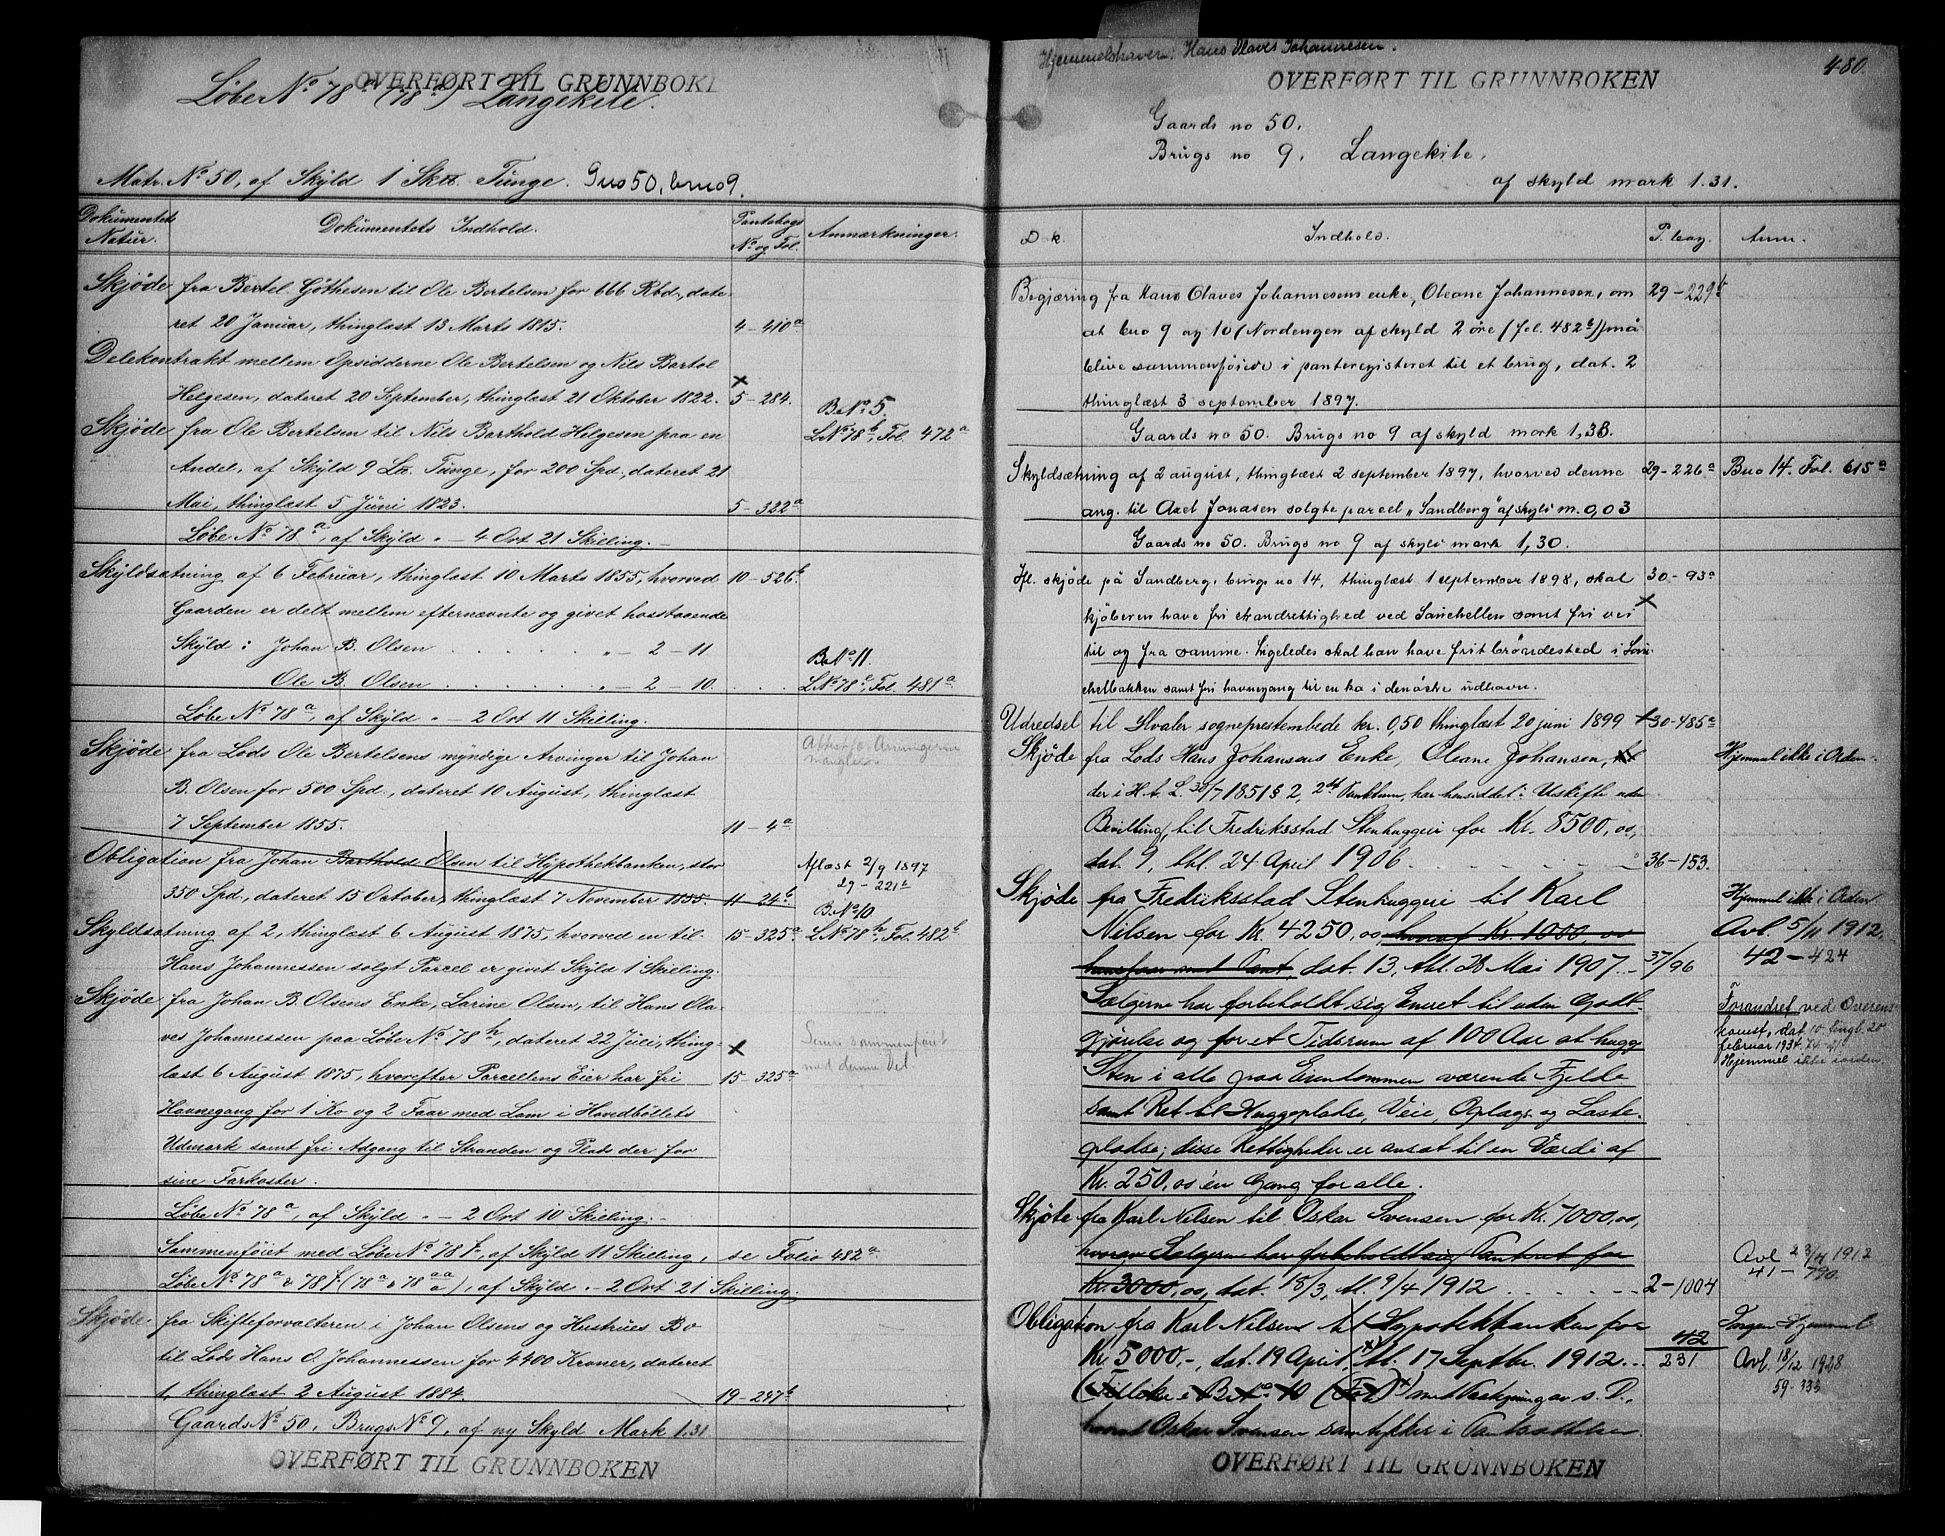 OVERFØRT TIL GRUNNBOKE
Løbe No 78a (78a) Langekile.
Matr. No 50, af Skyld 1 Sktt. Tunge. Gno 50, bno 9.
Dokumentets Natur. Dokumentets Indhold. Pantebogs No og Fol. Anmærkninger.
Skjøde fra Bertel Göthesen til Ole Bertelsen for 666 Rbd., date-
ret 20 Januar, thinglæst 13 Marts 1815. 4-410a
Delekontrakt mellem Opsidderne Ole Bertelsen og Nils Bartol
Helgesen, dateret 20 September, thinglæst 21 Oktober 1822. X 5-284. BNo 5.
Skjøde fra Ole Bertelsen til Nils Barthold Helgesen paa en LNo 78b, Fol. 472a
Andel, af Skyld 9 Ltt. Tunge, for 200 Spd., dateret 21
Mai, thinglæst 5 Juni 1823. 5-322a
Løbe No 78a, af Skyld " - 4 Ort 21 Skilling.
Skyldsætning af 6 Februar, thinglæst 10 Marts 1855, hvorved 10-526b
Gaarden er delt mellem efternævnte og givet hosstaaende
Skyld: Johan B. Olsen . . . . . " - 2 - 11 BNo 11.
Ole B. Olsen . . . . . " - 2 10. . . . LNo 78, Fol. 481a
Løbe No 78a, af Skyld " - 2 Ort 11 Skilling.
Skjøde fra Lods Ole Bertelsens myndige Arvinger til Johan
B. Olsen for 500 Spd., dateret 10 August, thinglæst
7 September 1855. 11-4a
Obligation fra Johan Barthold Olsen til Hypothekbanken, stor Aflæst 2/9 1897
350 Spd., dateret 15 October, thinglæst 7 November 1855. 11-24b 29-221a
BNo 10
Skyldsætning af 2, thinglæst 6 August 1875, hvorved en til 15-325a LNo 78h, Fol. 482b
Hans Johannessen solgt Parcel er givet Skyld 1 Skilling.
Skjøde fra Johan B. Olsens Enke, Larine Olsen, til Hans Ola-
ves Johannessen paa Løbe No 78h, dateret 22 Juli, thing- Senere sammenføiet
læst 6 August 1875, hvorefter Parcellens Eier har fri X 15-325a med denne Del
Havnegang for 1 Ko og 2 Faar med Lam i Handbøllets
Udmark samt fri Adgang til Stranden og Plads der for
sine Farkoster.
Løbe No 78a, af Skyld " - 2 Ort 10 Skilling.
Sammenføiet med Løbe No 78f, af Skyld 11 Skilling, se Folio 482a.
Løbe No 78a & 78f (78a & 78aa), af Skyld " - 2 Ort 21 Skilling.
Skjøde fra Skifteforvalteren i Johan Olsens og Hustrues Bo
til Lods Hans O. Johannessen for 4400 Kroner, dateret
1, thinglæst 2 August 1884. 19-297b
Gaards No 50, Brugs No 9, af ny Skyld Mark 1.31
OVERFØRT TIL GRUNNBOKEN
Hjemmelshaver: Hans Olaves Johannesen.
OVERFØRT TIL GRUNNBOKEN
480.
Gaards no 50.
Brugs no 9. Langekile.
af skyld mark 1.31.
D k. Indhold. P. bog. Anm.
Begjæring fra Hans Olaves Johannesens enke, Oleane Johannesen, om 29-229b
at bno 9 og 10 (Nordengen af skyld 2 öre (fol. 482b)) må
blive sammenføiede i panteregisteret til et brug, dat. 2
thinglæst 3 september 1897.
Gaards no 50. Brugs no 9 af skyld mark 1,33.
Skyldsætning af 2 august, thinglæst 2 september 1897, hvorved denne 29-226a Bno 14. Fol. 615a
ang. til Axel Jonasen solgte parcel "Sandberg" af skyld m. 0,03
Gaards no 50. Brugs no 9 af skyld mark 1,30.
Ifl. skjøde på Sandberg, brugs no 14, thinglæst 1 september 1898, skal 30-93a
kjøberen have fri strandrettighed ved Sauehellen samt fri vei X
til og fra samme. Ligeledes skal han have frit brøndested i Sau-
ehelbakken samt fri havnegang til en ko i den østre udhavn.
Udredsel til Hvaler sogneprestembede kr. 0,50 thinglæst 20 juni 1899 30-485a
Skjøde fra Lods Hans Johansens Enke, Oleane Johansen, Hjemmel ikke i Orden.
der i H. t. L. 30/7 1851 § 2, 2det Punktum, har hensiddet i Uskifte uden
Bevilling, til Fredriksstad Stenhuggeri for Kr. 8500,00,
dat. 9, thl. 24 April 1906 36-153.
Skjøde fra Fredriksstad Stenhuggeri til Karl Hjemmel ikk i Orden
Nilsen for Kr. 4250,00 hvoraf Kr. 1000,00 Avl. 5/11 1912.
henstaar mod Pant, dat. 13, thl. 28 Mai 1907. 37/96 42-424
Sælgerne har forbeholdt sig Eneret til uden Godt- Forandret ved Overens-
gjørelse og for et Tidsrum af 100 Aar at hugge komst, dat 10 tingl. 20
Sten i alle paa Eiendommen værende Fjelde februar 1934.
Hjemmel ikke iorden.
samt Ret til Huggepladse, Veie, Oplags- og Laste-
pladse; disse Rettigheder er ansat til en Værdi af
Kr. 250,00 én Gang for alle.
Skjøte fra Karl Nilsen til Oskar Svensen for Kr. 7000,00,
hvorav Sælgeren har forbeholdt sig Panteret for Avl. 23/4 1912
Kr. 3000,00, dat. 18/3, tl. 9/4 1912 2-1004 41-790.
Obligation fra Karl Nilsen til Hypotekbanken for
Kr. 5000,-, dat. 19 April, tl. 17 Septbr. 1912... 42 231 Avl. 18/12 1928
59-333
hvorved Oskar Svensen samtykker i Pantsættelsen.
OVERFØRT TIL GRUNNBOKEN